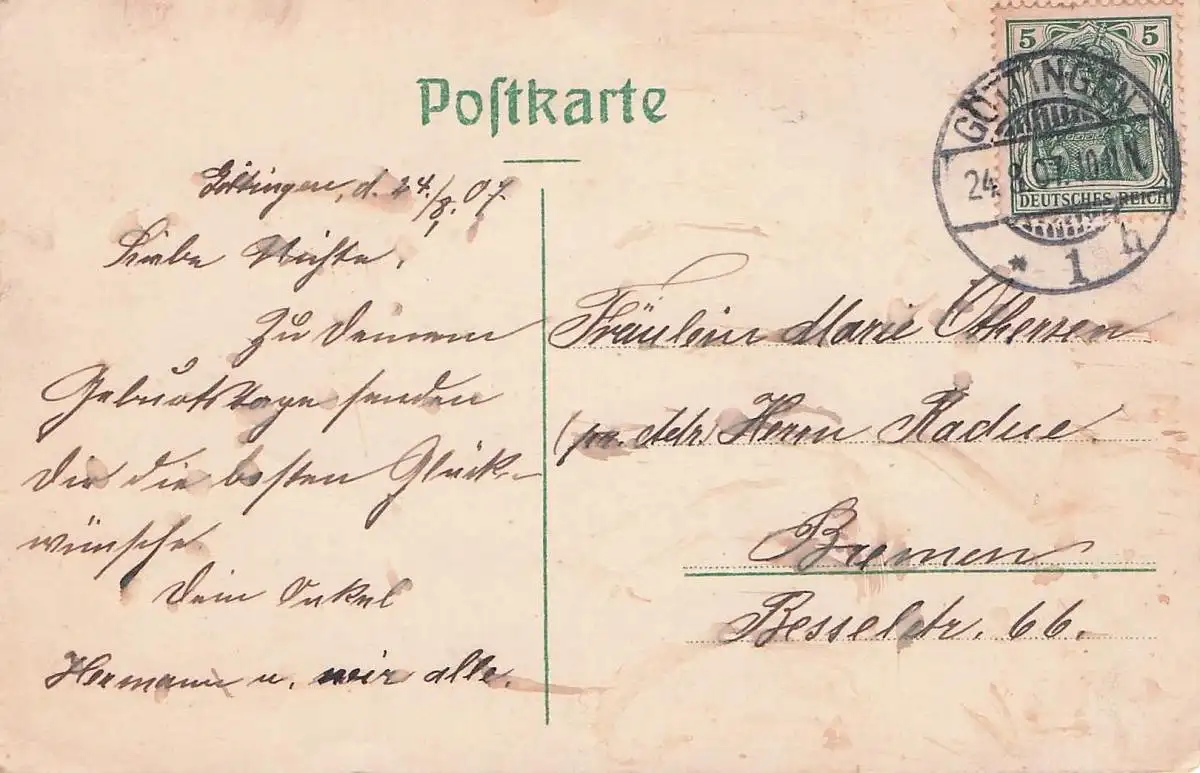 Postkarte
5 5
DEUTSCHES REICH
GÖTTINGEN
24.8.07.10-11 N
* 1 h
Göttingen, d. 24./8. 07.
Liebe Nichte,
Zu Deinem
Geburtstage senden
Dir die besten Glück-
wünsche
Dein Onkel
Hermann u. wir alle.
Fräulein Marie Othersen
(pr. Adr.) Herrn Radue.
Bremen
Besselstr. 66.